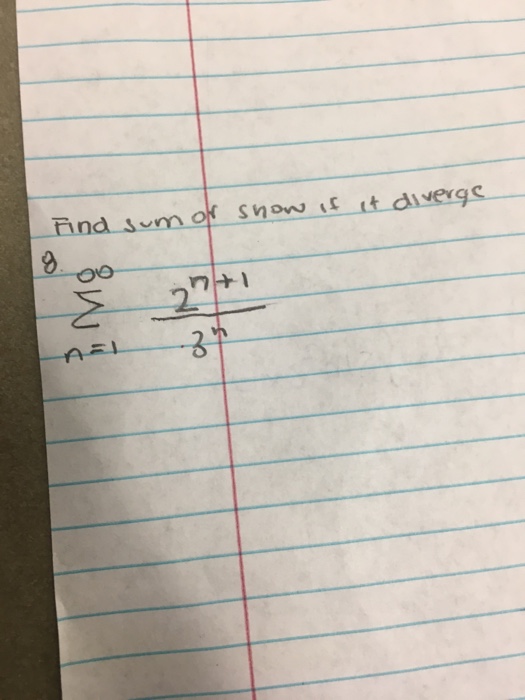 Find sum or show if it diverge
8.
∞
Σ 2^{n+1} / 3^n
n=1